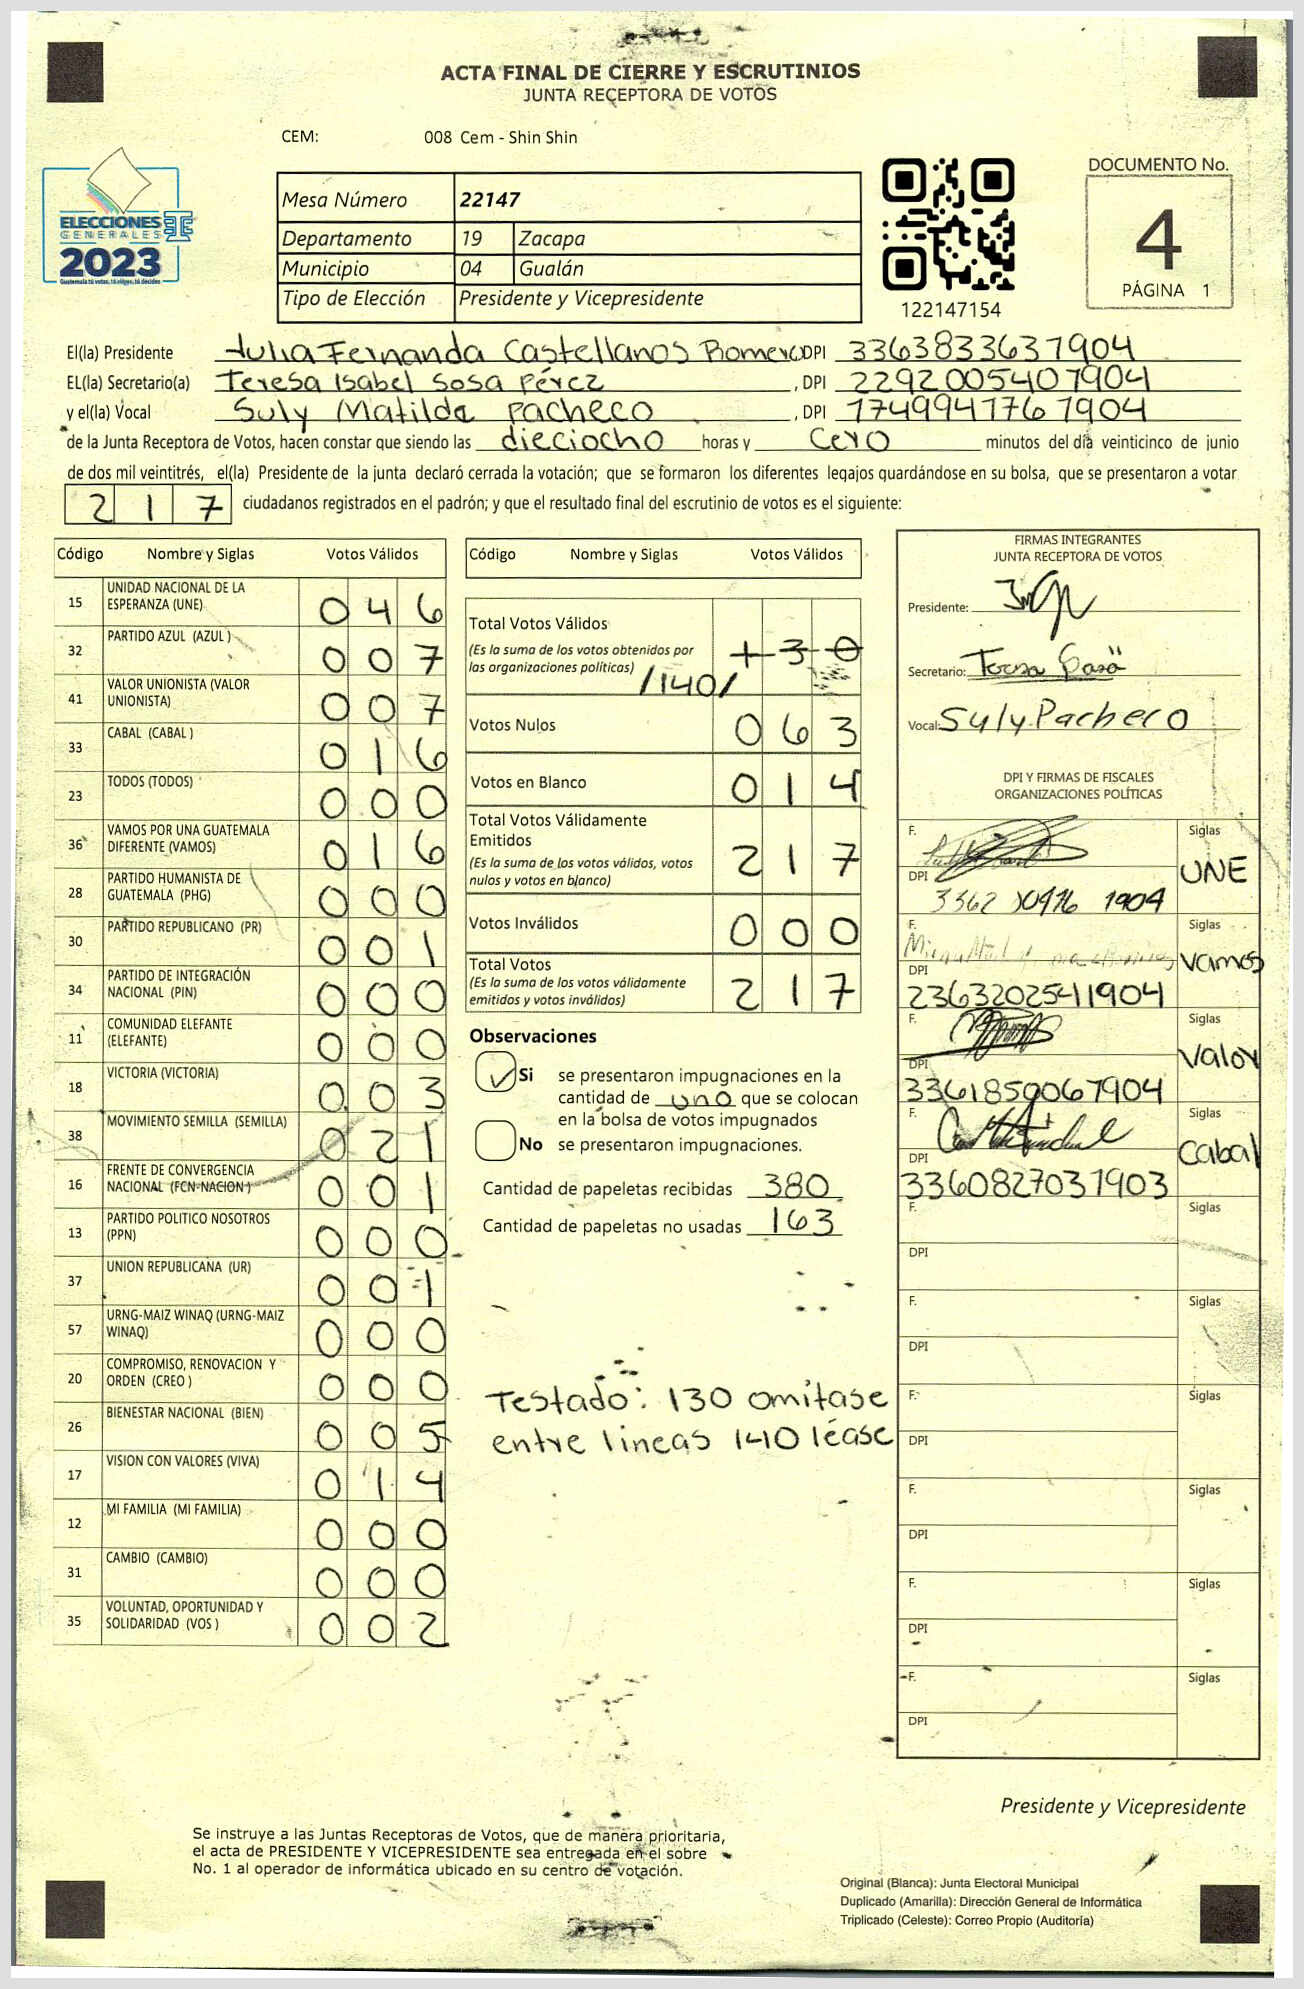 ACTA FINAL DE CIERRE Y ESCRUTINIOS
JUNTA RECEPTORA DE VOTOS
CEM: 008 Cem - Shin Shin
ELECCIONES
GENERALES
2023
Guatemala tú votas, tú eliges, tú decides
Mesa Número 22147
Departamento 19 Zacapa
Municipio 04 Gualán
Tipo de Elección Presidente y Vicepresidente
122147154
DOCUMENTO No.
4
PÁGINA 1
El(la) Presidente Julia Fernanda Castellanos Romero DPI 3363833631904
EL(la) Secretario(a) Teresa Isabel Sosa Pérez , DPI 2292005401904
y el(la) Vocal Suly Matilda Pacheco , DPI 1749941761904
de la Junta Receptora de Votos, hacen constar que siendo las dieciocho horas y cero minutos del día veinticinco de junio
de dos mil veintitrés, el(la) Presidente de la junta declaró cerrada la votación; que se formaron los diferentes legajos quardándose en su bolsa, que se presentaron a votar
217 ciudadanos registrados en el padrón; y que el resultado final del escrutinio de votos es el siguiente:
Código Nombre y Siglas Votos Válidos
15 UNIDAD NACIONAL DE LA
ESPERANZA (UNE) 046
32 PARTIDO AZUL (AZUL ) 007
41 VALOR UNIONISTA (VALOR
UNIONISTA) 007
33 CABAL (CABAL ) 016
23 TODOS (TODOS) 000
36 VAMOS POR UNA GUATEMALA
DIFERENTE (VAMOS) 016
28 PARTIDO HUMANISTA DE
GUATEMALA (PHG) 000
30 PARTIDO REPUBLICANO (PR) 001
34 PARTIDO DE INTEGRACIÓN
NACIONAL (PIN) 000
11 COMUNIDAD ELEFANTE
(ELEFANTE) 000
18 VICTORIA (VICTORIA) 003
38 MOVIMIENTO SEMILLA (SEMILLA) 021
16 FRENTE DE CONVERGENCIA
NACIONAL (FCN-NACION ) 001
13 PARTIDO POLITICO NOSOTROS
(PPN) 000
37 UNION REPUBLICANA (UR) 001
57 URNG-MAIZ WINAQ (URNG-MAIZ
WINAQ) 000
20 COMPROMISO, RENOVACION Y
ORDEN (CREO ) 000
26 BIENESTAR NACIONAL (BIEN) 005
17 VISION CON VALORES (VIVA) 014
12 MI FAMILIA (MI FAMILIA) 000
31 CAMBIO (CAMBIO) 000
35 VOLUNTAD, OPORTUNIDAD Y
SOLIDARIDAD (VOS ) 002
Código Nombre y Siglas Votos Válidos
Total Votos Válidos
(Es la suma de los votos obtenidos por
las organizaciones políticas) 130
/140/
Votos Nulos 063
Votos en Blanco 014
Total Votos Válidamente
Emitidos
(Es la suma de los votos válidos, votos
nulos y votos en blanco) 217
Votos Inválidos 000
Total Votos
(Es la suma de los votos válidamente
emitidos y votos inválidos) 217
Observaciones
Si se presentaron impugnaciones en la
cantidad de uno que se colocan
en la bolsa de votos impugnados
No se presentaron impugnaciones.
Cantidad de papeletas recibidas 380
Cantidad de papeletas no usadas 163
Testado: 130 omitase
entre lineas 140 léase
FIRMAS INTEGRANTES
JUNTA RECEPTORA DE VOTOS
Presidente:
Secretario: Teresa Sosa
Vocal: Suly Pacheco
DPI Y FIRMAS DE FISCALES
ORGANIZACIONES POLÍTICAS
F. Siglas
UNE
DPI
1904
F. Siglas
Vamos
DPI
2363202541904
F. Siglas
Valor
DPI
3361859061904
F. Siglas
Cabal
DPI
3360827031903
F. Siglas
DPI
F. Siglas
DPI
F. Siglas
DPI
F. Siglas
DPI
F. Siglas
DPI
F. Siglas
DPI
Presidente y Vicepresidente
Se instruye a las Juntas Receptoras de Votos, que de manera prioritaria,
el acta de PRESIDENTE Y VICEPRESIDENTE sea entregada en el sobre
No. 1 al operador de informática ubicado en su centro de votación.
Original (Blanca): Junta Electoral Municipal
Duplicado (Amarilla): Dirección General de Informática
Triplicado (Celeste): Correo Propio (Auditoría)